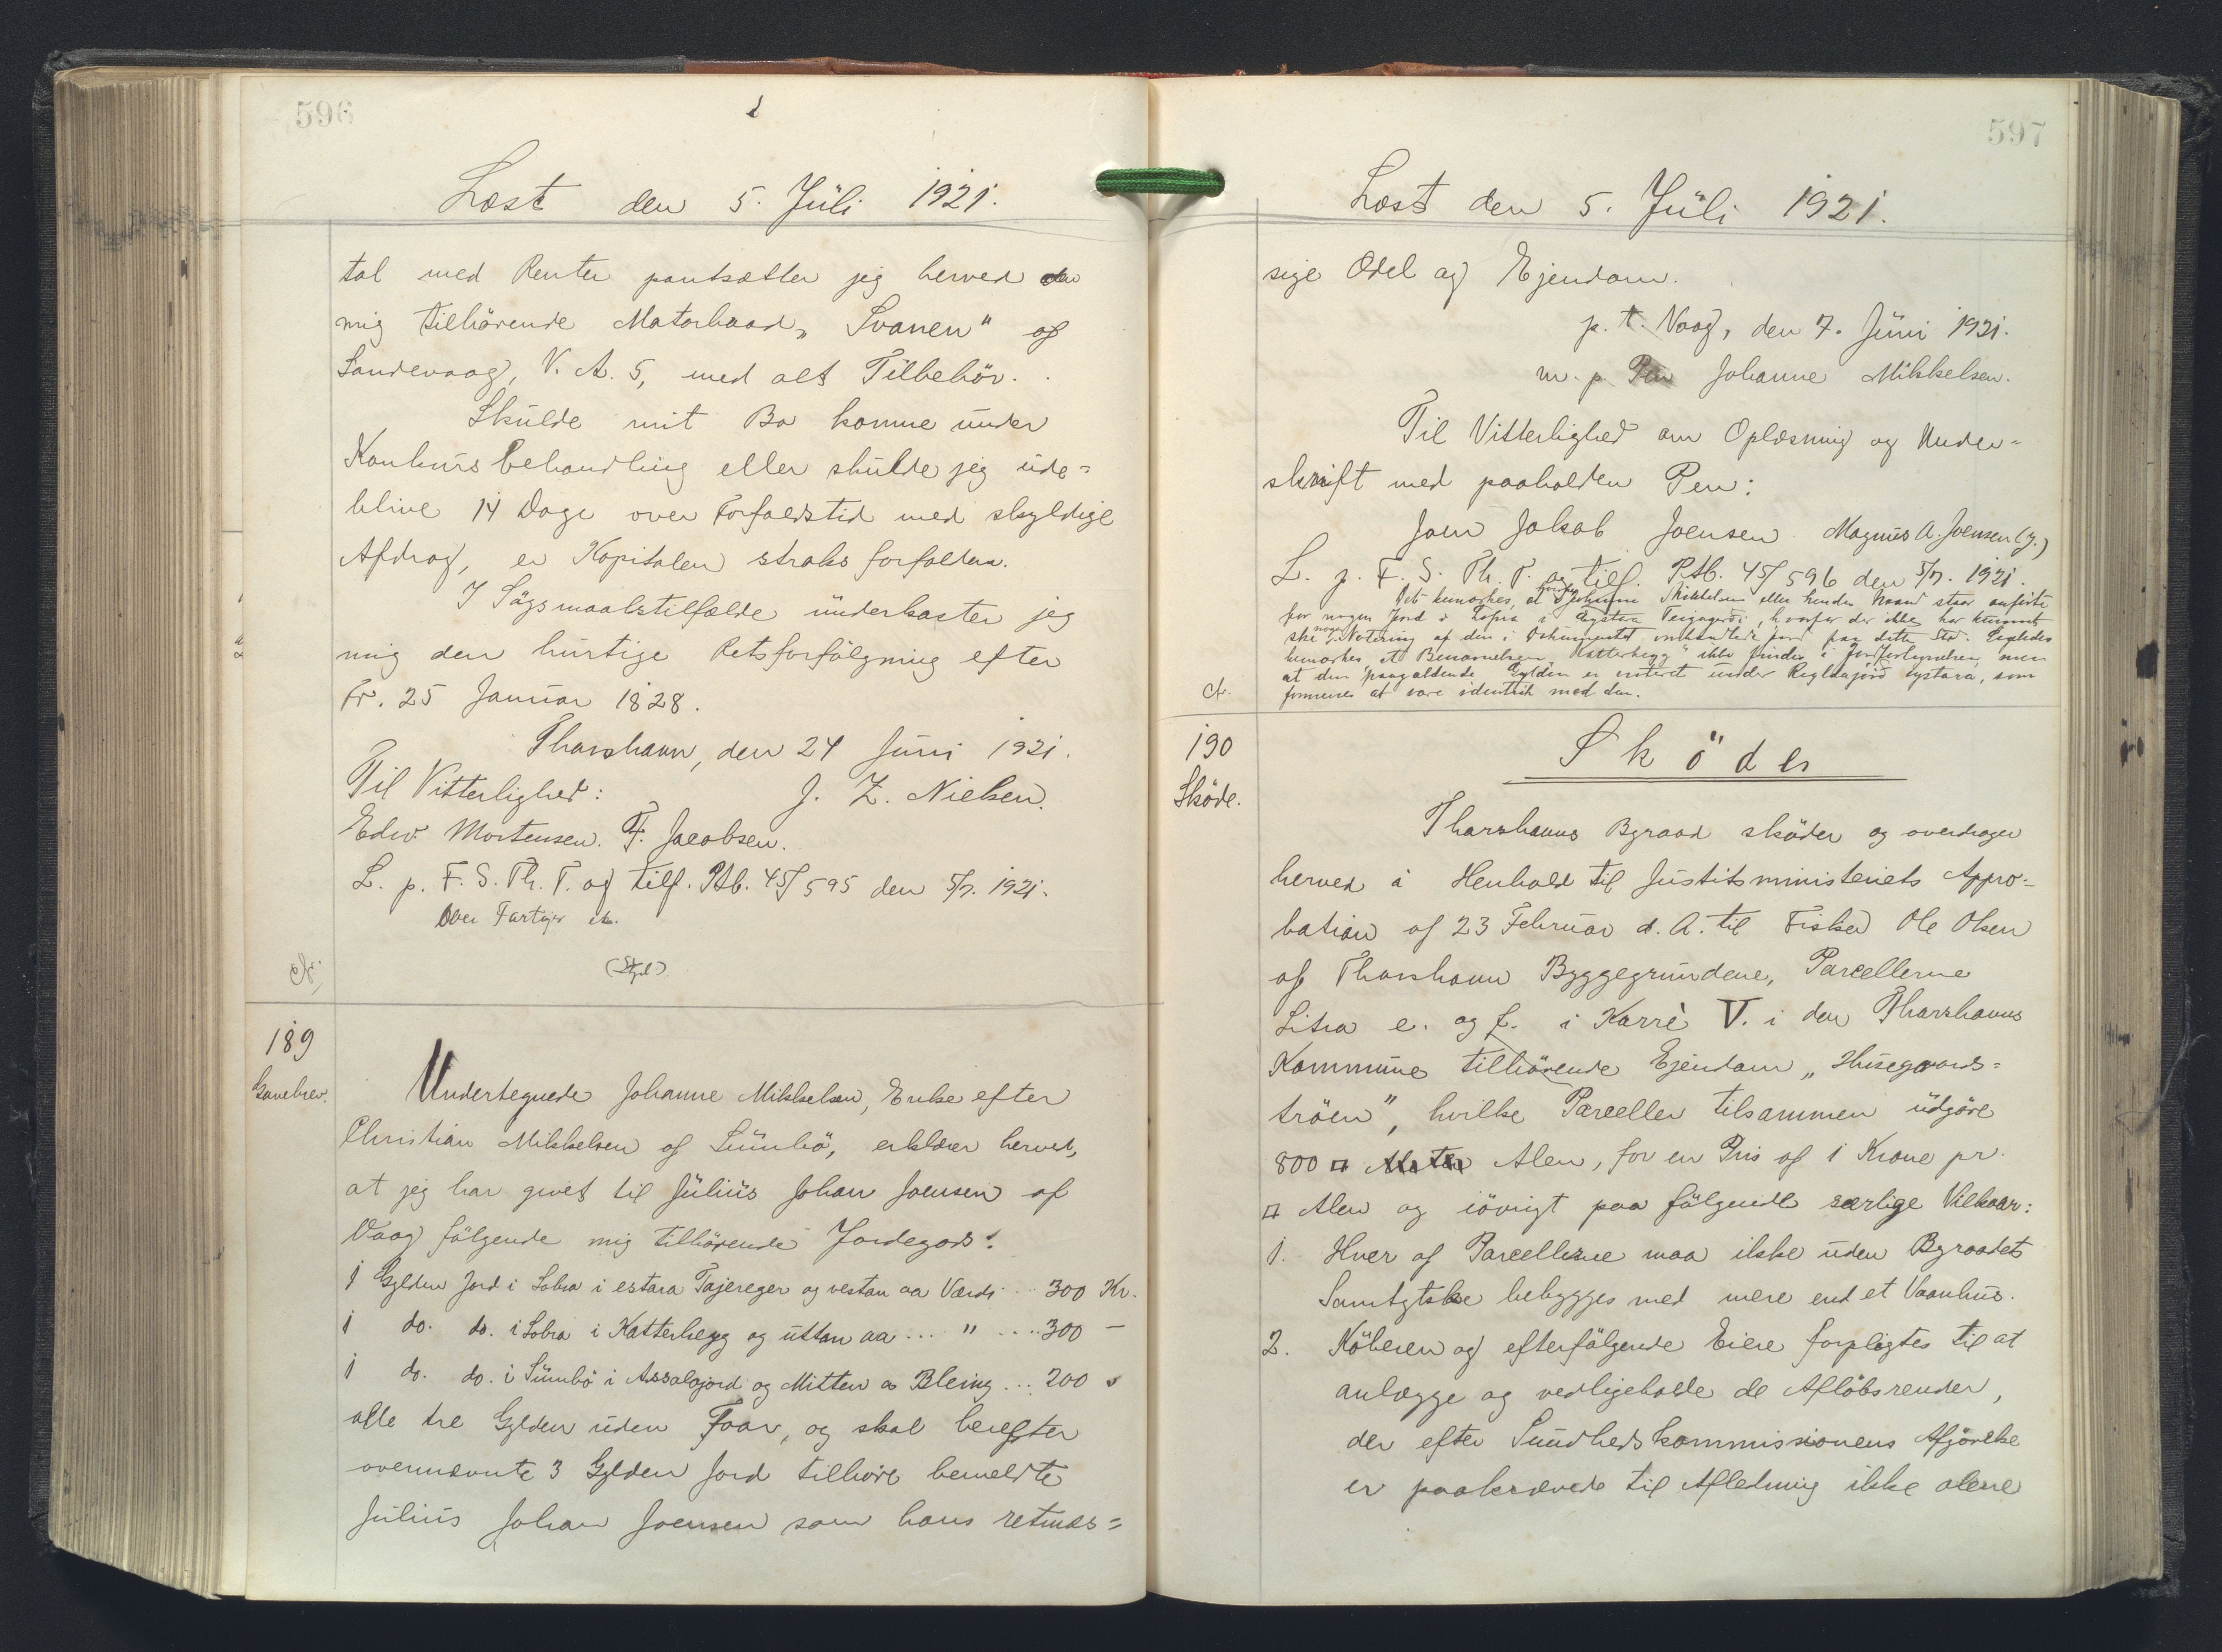 596
Læst den 5. Júli 1921.
tal med Renter pantsætter jeg herved den
mig tilhörende Motorbaad "Svanen" af
Sandevaag, V. A. 5, med alt Tilbehör.
Skúlde mit Bo komme únder
Konkúrsbehandling eller skúlde jeg úde=
blive 14 Dage over Forfaldstid med skyldige
Afdrag, er Kapitalen straks forfalden.
I Sögsmaalstilfælde únderkaster jeg
mig den húrtige Retsforfölgning efter
Fr. 25 Janúar 1828.
Thorshavn, den 24 Júni 1921.
Til Vitterlighed: J. Z. Nielsen.
Edw. Mortensen. F. Jacobsen.
L. p. F. S. Th. T. og tilf. Ptb. 45/595 den 5/7. 1921.
over Fartøjer etc.
189
Gavebrev.
Undertegnede Johanne Mikkelsen, Enke efter
Christian Mikkelsen af Súmbö, erklærer herved,
at jeg har givet til Júliús Johan Joensen af
Vaag fölgende mig tilhörende Jordegods:
1 Gylden Jord i Lobra i estara Tajereger og vestan aa Værdi ... 300 Kr.
1 do. do. i Lobra i Katterhegg og úttan aa ... " .... 300 -
1 do. do. i Súmbö i Assalajord og Mitten a Bleing ... 200 "
alle tre Gylden úden Faar, og skal herefter
ovennævnte 3 Gylden Jord tilhøre bemeldte
Júliús Johan Joensen som hans retmæs=
597
Læst den 5. Júli 1921.
sige Odel og Ejendom.
p. t. Vaag, den 7. Júni 1921.
m. p. Pen Johanne Mikkelsen.
Til Vitterlighed om Oplæsning og Under=
skrift med paaholden Pen:
Joen Jakob Joensen. Magnús A. Joensen (J.)
L. p. F. S. Th. T. og tilf. Ptb. 45/596 den 5/7. 1921.
Det bemærkes, at Johanne Mikkelsen eller hendes Mand staar anførte
for nogen Jord i Lopra i Eystara, hvorfor der ikke har kunnet
ske nogen Notering af den i Dokumentet omhandlede Jord paa dette Sted. Ligeledes
bemærkes, at Benævnelsen "Katterhegg" ikke findes i Jordfortegnelsen, men
at den paagældende Gylden er noteret under eystara, som
formenes at være identisk med den.
190
Sköde.
Sköder
Thorshavns Byraad sköder og overdrager
herved i Henhold til Jústitsministeriets Appro=
bation af 23 Febrúar d. A. til Fisker Ole Olsen
af Thorshavn Byggegrúndene, Parcellerne
Litra e. og f. i Karrè V. i den Thorshavns
Kommúne tilhörende Ejendom "Húsegaards=
tröen", hvilke Parceller tilsammen údgöre
800 □ Alen, for en Pris af 1 Krone pr.
□ Alen og iövrigt paa fölgende særlige Vilkaar:
1. Hver af Parcellerne maa ikke úden Byraadets
Samtykke bebygges med mere end et Vaanhús.
2. Köberen og efterfölgende Eiere forpligtes til at
anlægge og vedligeholde de Aflöbsrender,
der efter Súndhedskommissionens Afgörelse
er paakrævede til Afledning ikke alene